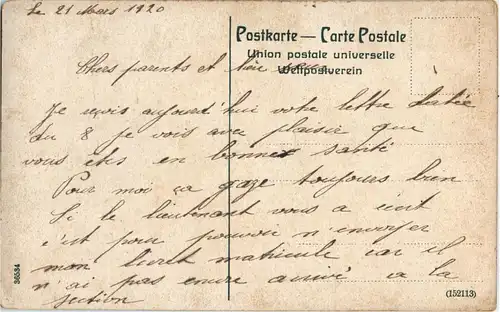 Le 21 Mars 1920
Postkarte — Carte Postale
Union postale universelle
Weltpostverein
Chers parents et
Je reçois aujourd'hui votre lettre datée
du 8 je vois avec plaisir que
vous etes en bonnes santé
Pour moi ça gaze toujours bien
Si le lieutenant vous a ecrit
c'est pour pouvoir m'envoyer
mon livret matricule car il
n'ai pas encore arrivé a la
section
36534
(152113)